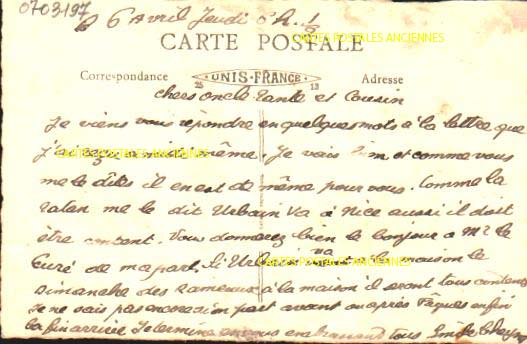 0703197
6 Avril Jeudi 5 h. ½
CARTES POSTALES ANCIENNES
CARTE POSTALE
Correspondance UNIS-FRANCE Adresse
Chers oncle Tante et Cousin
Je viens vous répondre en quelques mots à la lettre que
j'ai reçue à midi même. Je vais et comme vous
CARTES POSTALES ANCIENNES
me le dites il en est de même pour vous. Comme la
me le dit Urbain va à Nice aussi il doit
être content. Vous donnerez bien le bonjour à Mr le
Curé de ma part. Si Urbain va à la maison le
CARTES POSTALES ANCIENNES
Dimanche des Rameaux à la maison il seront tous contents
Je ne sais pas encore si on part avant ou après Pâques enfin
la fin arrive Je termine en vous embrassant tous Emile